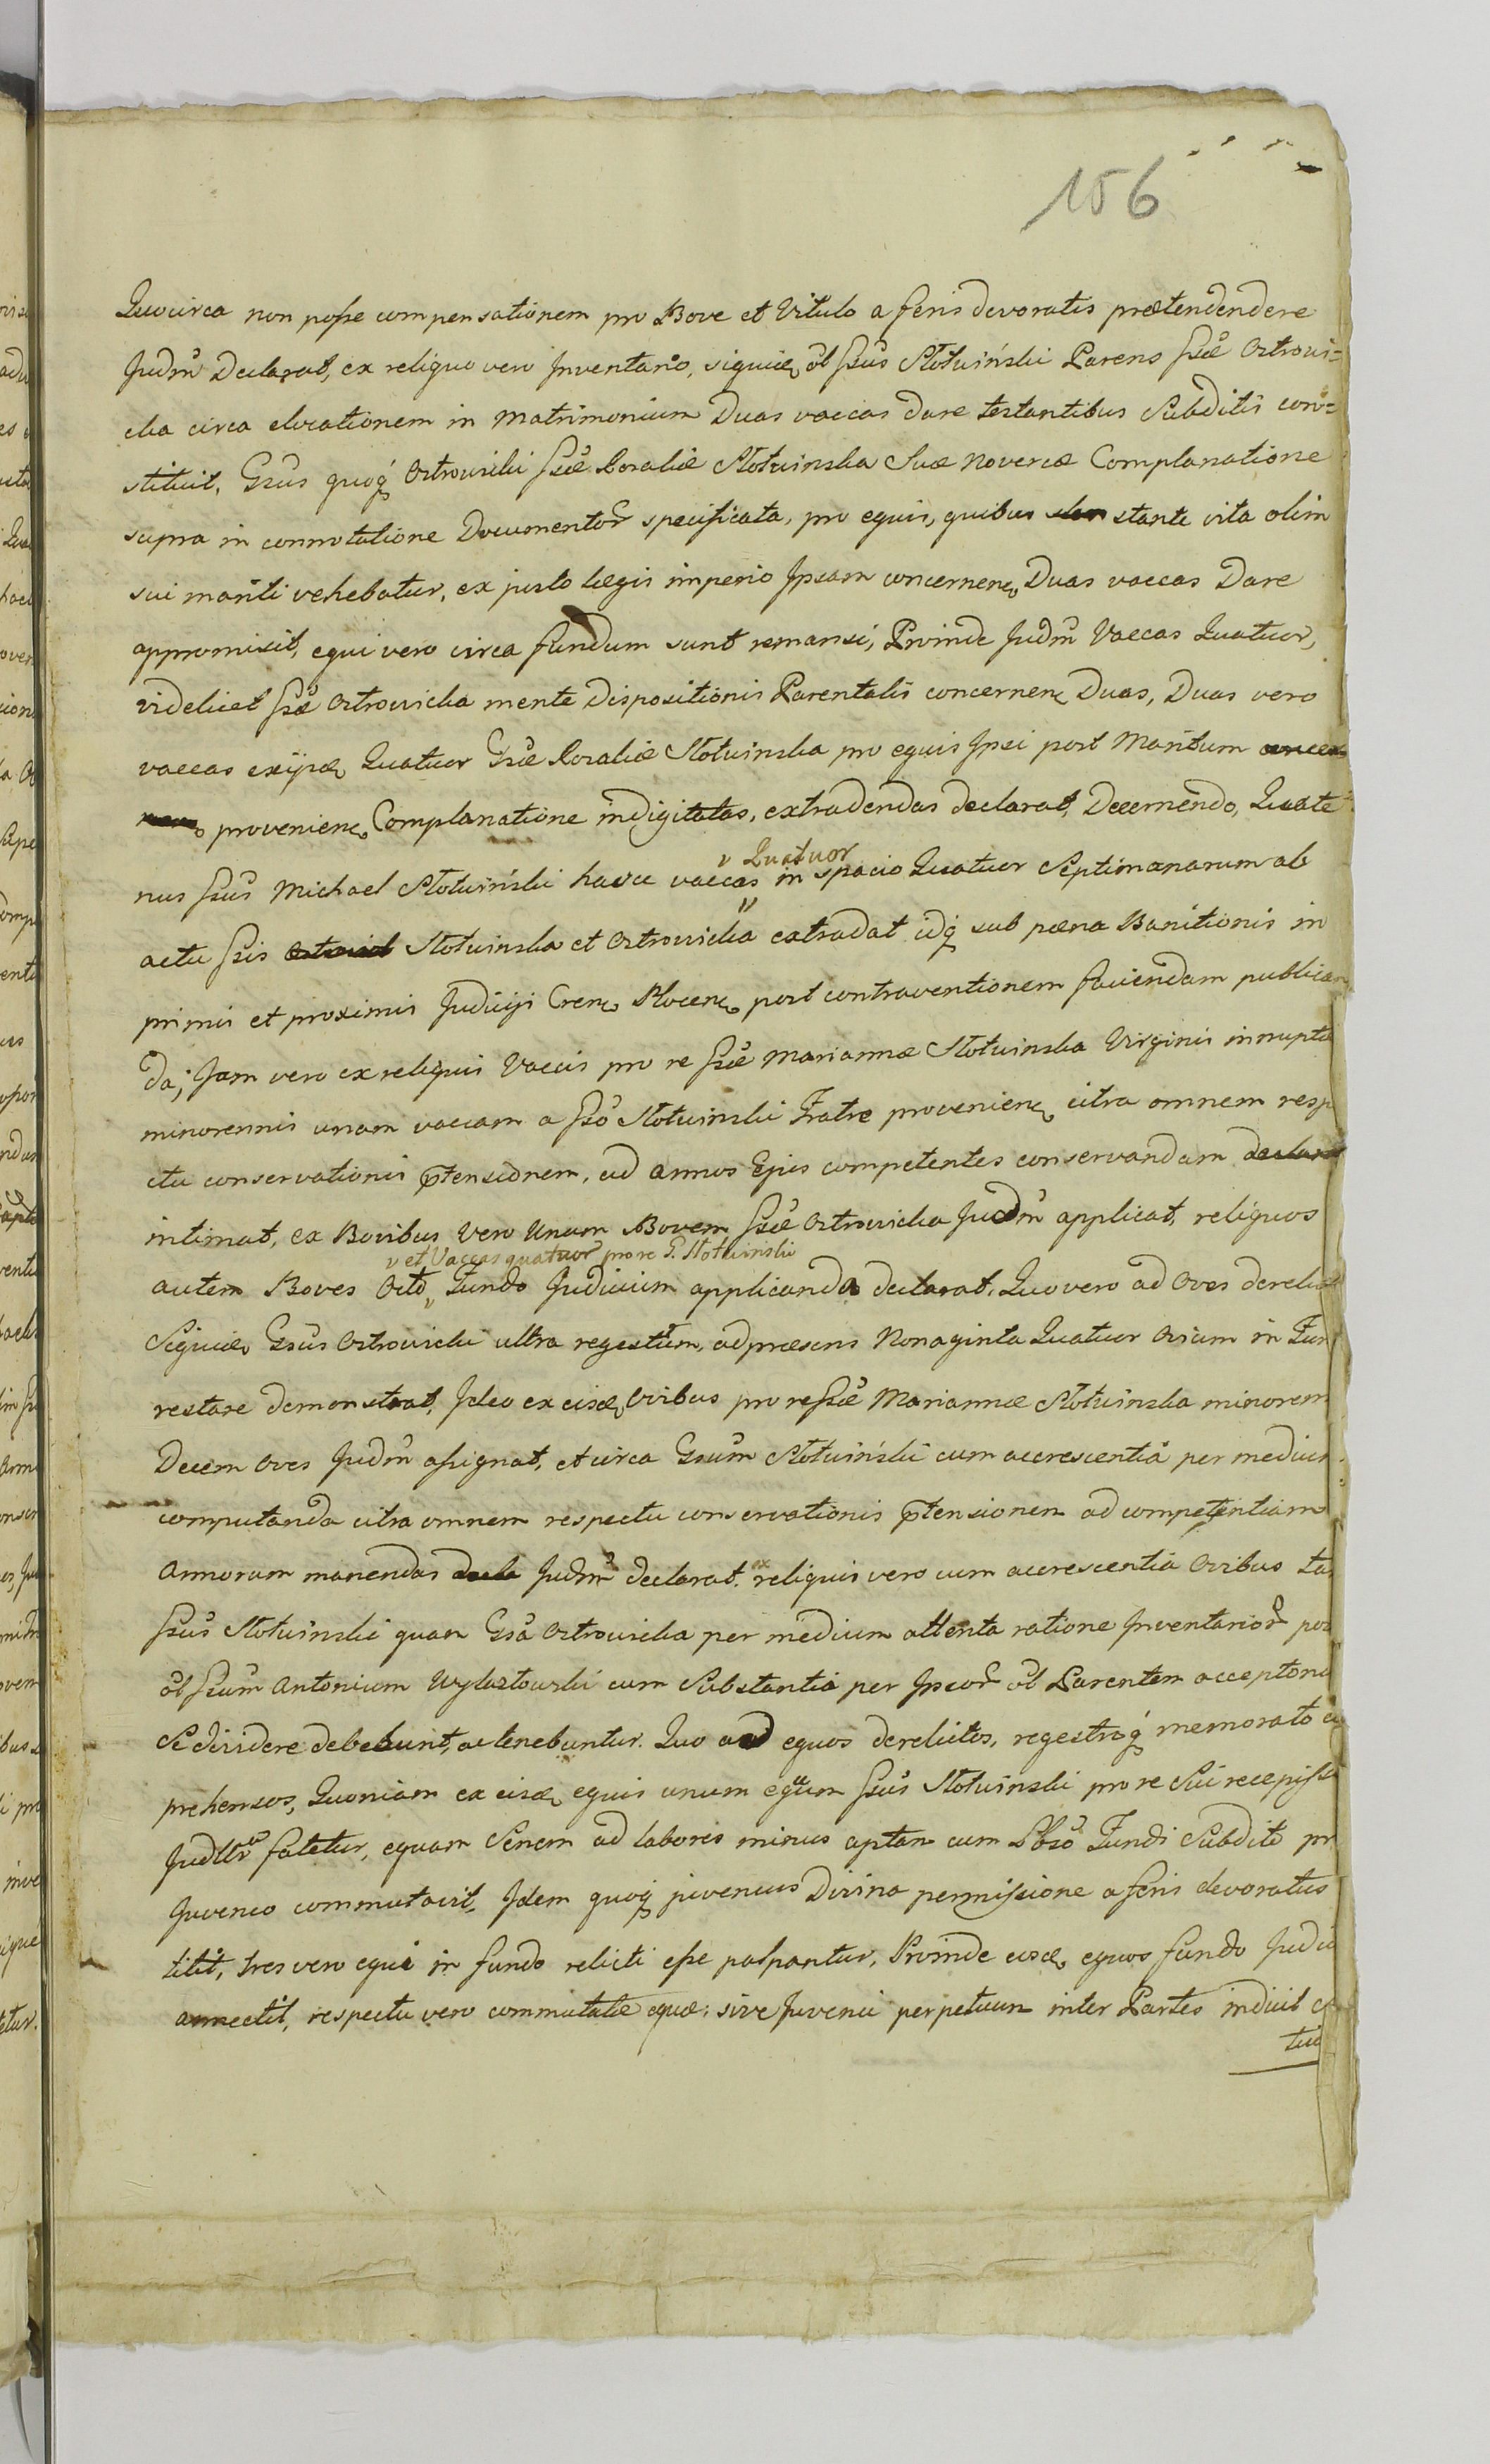 156
Quocirca non posse compensationem pro Bove et Vitulo a feris devoratis praetendendere
Judm̃ Declarat, ex reliquo vero Inventario, siquidę ol Gsus Słotwiński Parens Gsae Ostrowi=
cka circa elocationem in Matrimonium Duas vaccas dare testantibus Subditis con=
stituit, Gsus quoq́ Ostrowicki Gsae Rosaliae Słotwinska Suae Novercae Complanatione
supra in connotatione Documentor̃ specificata, pro equis, quibus stante vita olim
sui mariti vehebatur, ex justo Legis imperio Ipsam concernenę Duas vaccas Dare
appromisit, equi vero circa fundum sunt remansi, Proinde Judm̃ Vaccas Quatuor,
videlicet Gsae Ostrowicka mente Dispositionis Parentalis concernenę Duas, Duas vero
vaccas exijsdę Quatuor Gsae Rosaliae Słotwinska pro equis Ipsi post Maritum
provenienę Complanatione indigitatas, extradendas declarat, Decernendo, Quate
nus Gsus Michael Słotwiński hasce vaccas in spacio Quatuor Septimanarum ab
Quatuor
actu Gsis Słotwinska et Ostrowicka extradat idq́ sub paena Banitionis in
primis et proximis Judicijs Crenę Plocenę post contraventionem faciendam publican
da; Jam vero ex reliquis Vaccis pro re Gsae Mariannae Słotwinska Virginis innuptae
minorennis unam vaccam a Gso Słotwinski Fratre provenienę citra omnem respe
ctu conservationis p̃tensionem, ad annos Ejus competentes conservandam declarat
intimat, ex Bovibus Vero Unum Bovem Gsae Ostrowicka Judm̃ applicat, reliquos
et Vaccas quatuor pro re G. Słotwinski
autem Boves Octo Fundo Judicium applicanda declarat. Quo vero ad Oves derelic
Siquidę Gsus Ostrowicki ultra regestum, adpraesens Nonaginta Quatuor Ovium in Fun
restare demonstrat, Ideo ex eisdę Ovibus pro re Gsae Mariannae Słotwinska minorem
Decem Oves Judm̃ assignat, et circa Gsum Słotwiński cum accrescentia per medium
computanda citra omnem respectu conservationis p̃tensionem ad competentiam
Annorum manendas Judm̃ declarat. ex reliquis vero cum accrescentia Ovibus ta
Gsus Słotwinski quam Gsa Ostrowicka per medium attenta ratione Inventarior̃ pos
ol Gsum Antonium Wylaztowski cum Substantia per Ipsor̃ ol Parentem acceptor
Se dividere debebunt, ac tenebuntur. Quo ad equos derelictos, regestroq́ memorato co
prehensos, Quoniam ex eisdę equis unum equum Gsus Słotwinski pro re Sui recepisse
Judtr̃ fatetur, equam Senem ad labores minus aptam cum Lbso Fundi Subdito pr
Juvenco commutavit, Idem quoq́ juvencus Divina permissione a feris devoratus
titit, tres vero equi in fundo relicti esse palpantur, Proinde eosdę equos fundo Judic
annectit, respectu vero commutatae equae, sive Juvenci perpetuum inter Partes indicit
tui